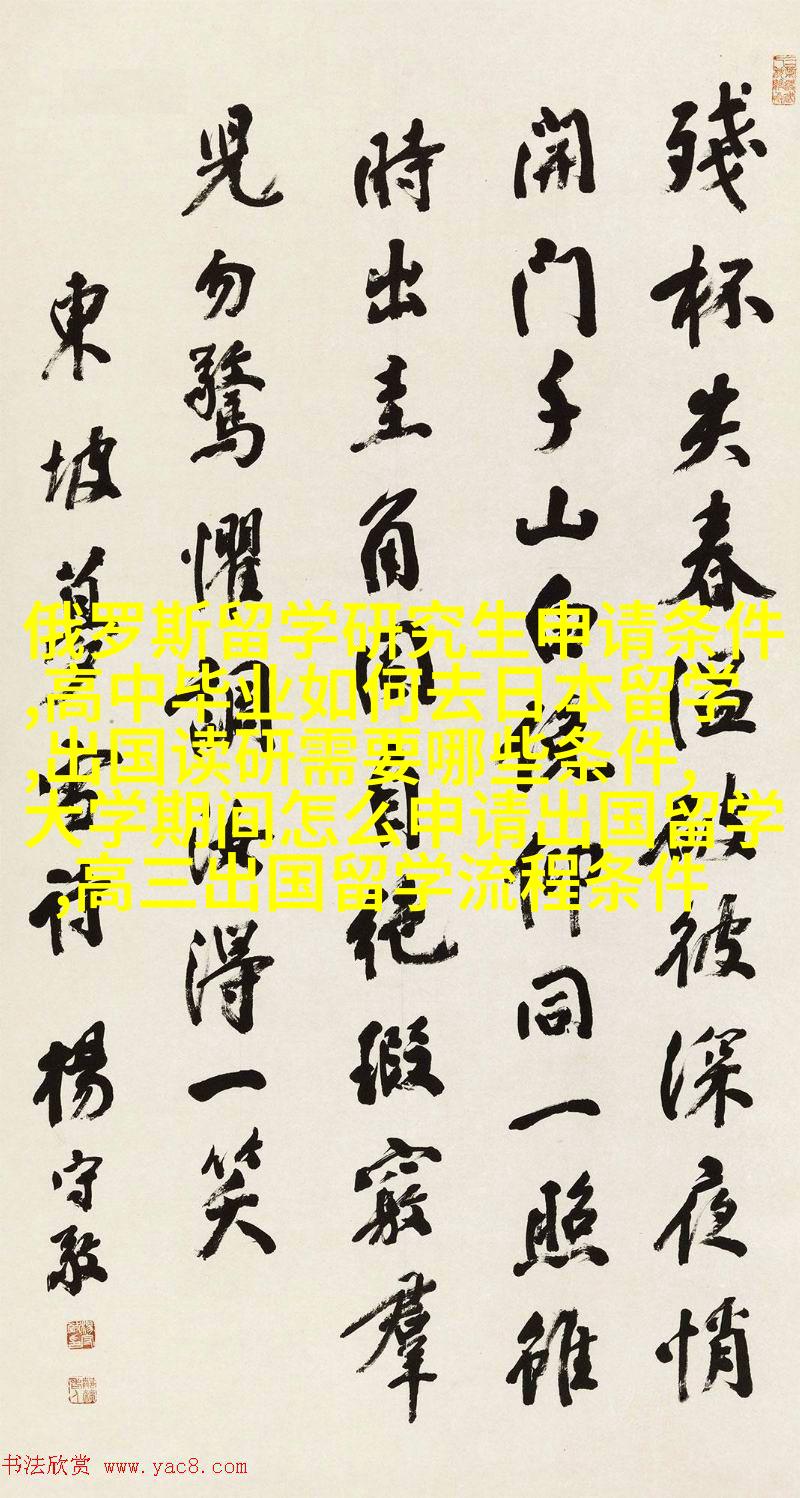 残杯失春温破彼深夜悄
開门千山白俯仰同一照雖
時出圭角固自絕瑕竅羣
兒勿驚懼調汝得一笑
東坡雪詩 楊守敬
俄罗斯留学研究生申请条件
,高中毕业如何去日本留学
,出国读研需要哪些条件,
大学期间怎么申请出国留学
,高三出国留学流程条件
书法欣赏 www.yac8.com